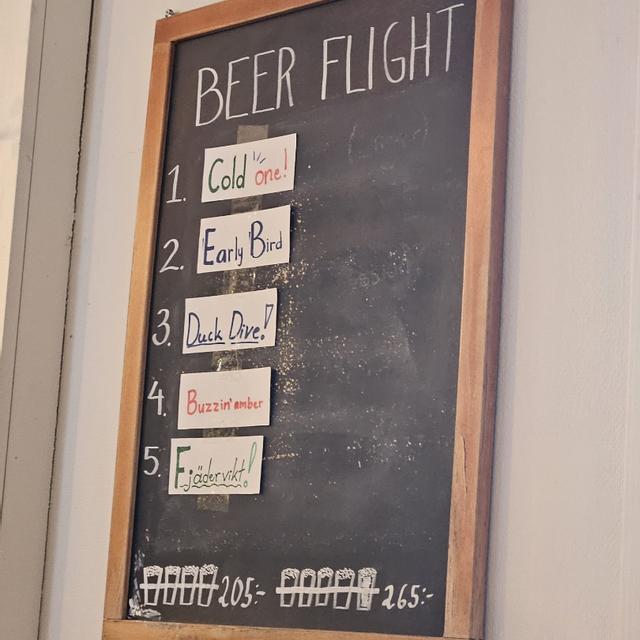 BEER FLIGHT
1. Cold one!
2. Early Bird
3. Duck Dive!
4. Buzzin' amber
5. Fjädervikt!
205:- 265:-